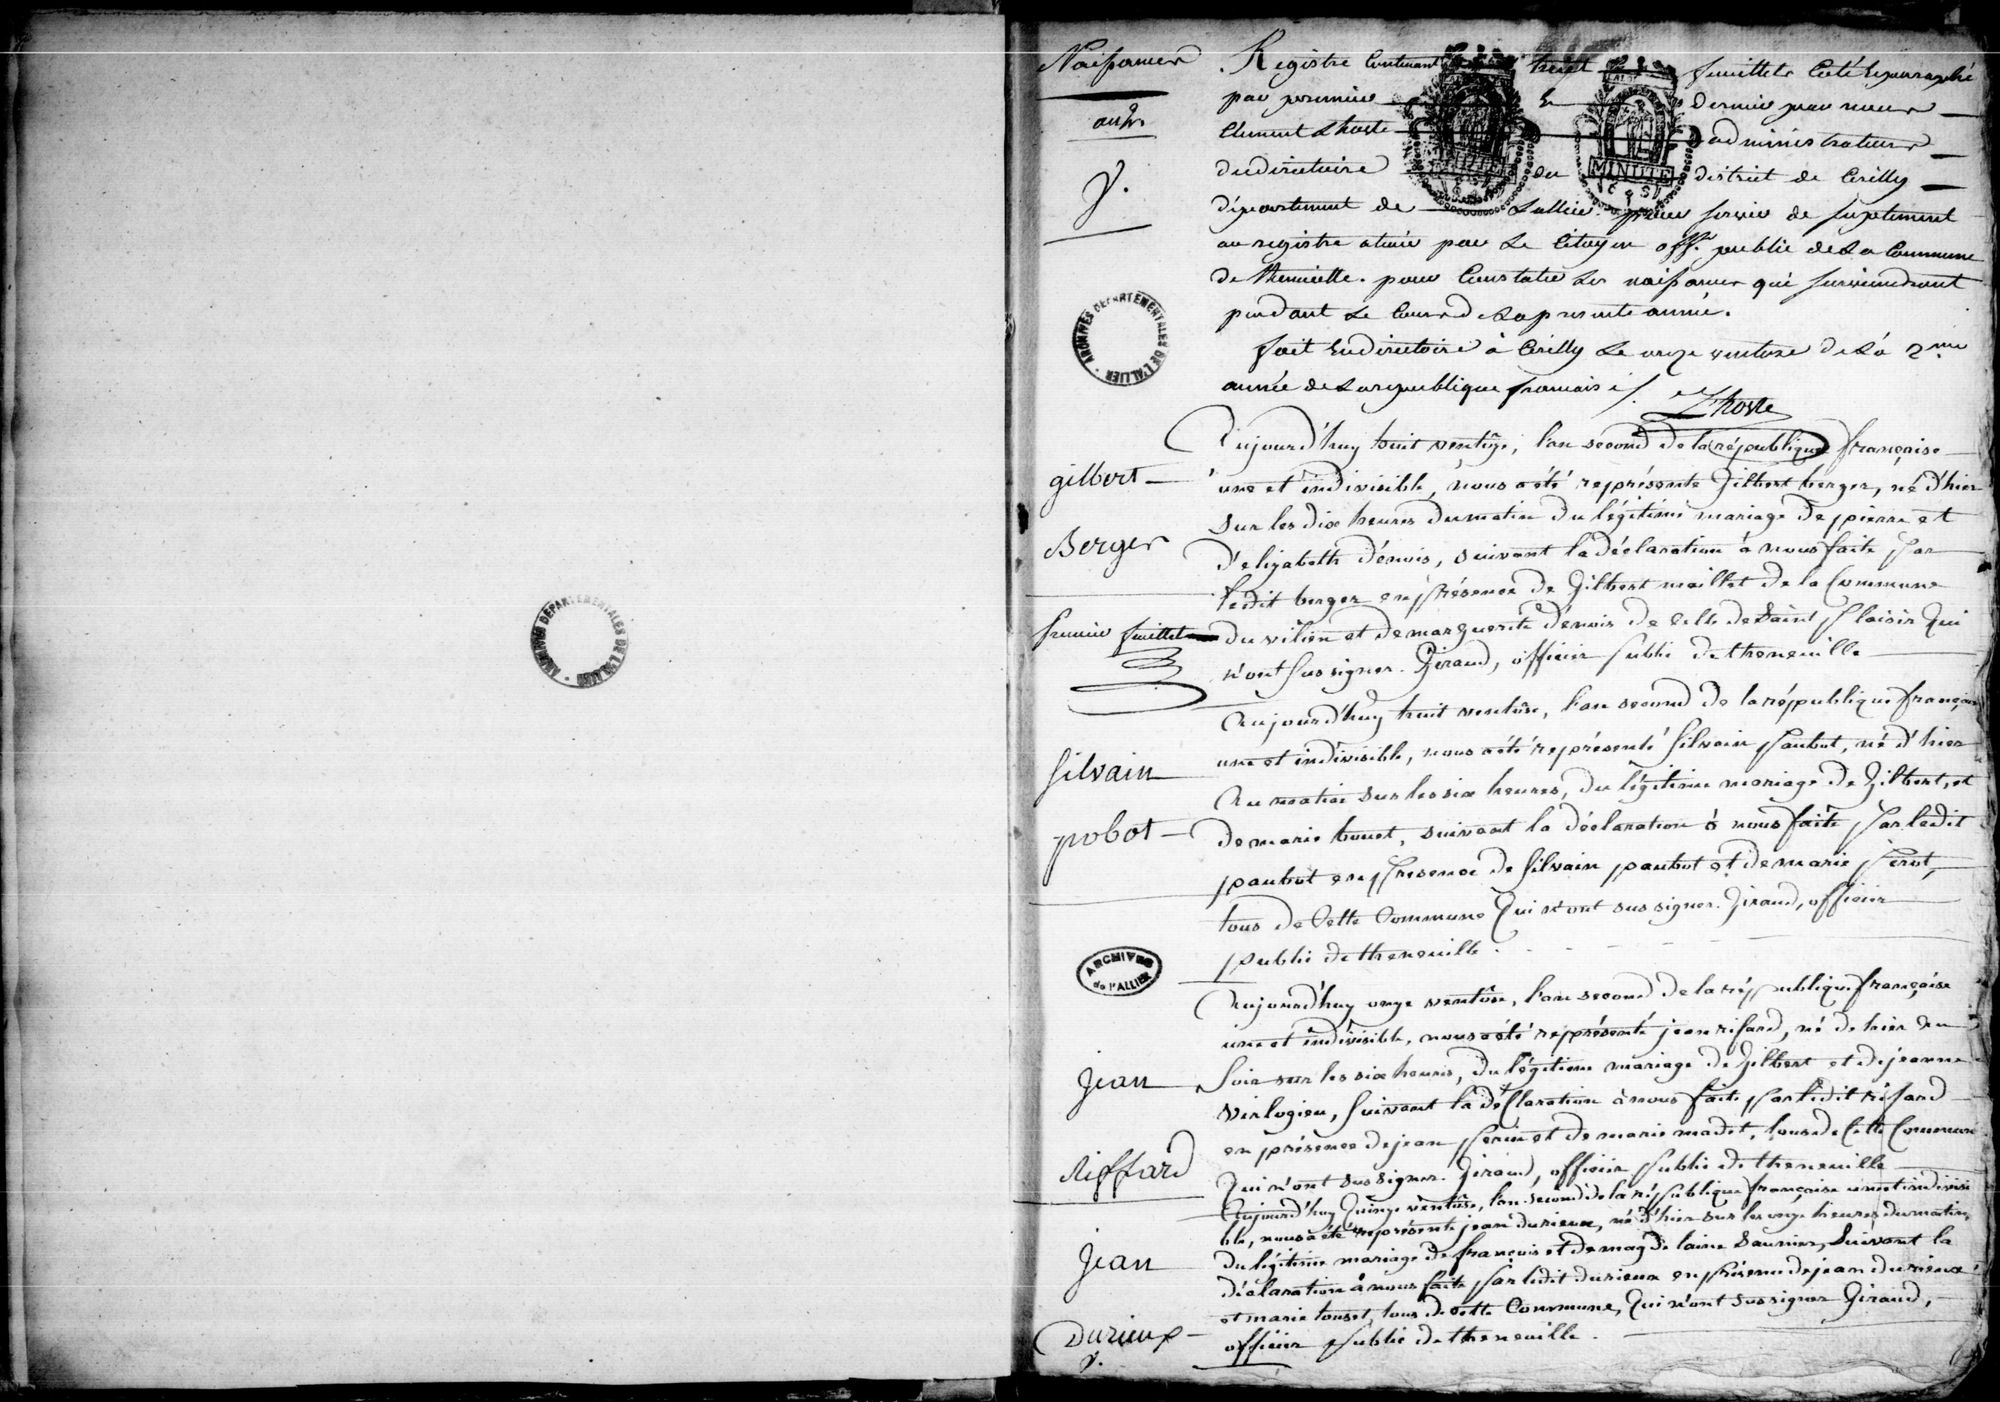 ARCHIVES DÉPARTEMENTALES DE L'ALLIER
Naissances
an 2e
Registre Contenant huit feuillets Coté & paraphé
par premier & dernier par nous
Clement Lhoste administrateur
du directoire du district de Cerilly
MINUTE
département de Lallier pour servir de suplement
au registre par Le Citoyen off. public de La Commune
de theneuille. pour Constater Les naissances qui surviendront
pendant Le Cours de La presente année.
ARCHIVES DÉPARTEMENTALES DE L'ALLIER
fait En directoire à Cerilly Le onze ventose de La 2me
année de La republique francaise /.
Lhoste
gilbert
Berger
Aujourd'huy huit ventôse, l'an second de la république française
une et indivisible, nous a été représenté Gilbert berger, né d'hier
sur les dix heures du matin du légitime mariage de pierre et
d'elizabeth dénois, suivant la déclaration à nous faite par
ledit berger en présence de Gilbert maillet de la Commune
premier feuillet
du vilien et de marguerite dénois de celle de Saint plaisir Qui
n'ont su signer. Giraud, officier public de theneuille
Silvain
pobot
Aujourd'huy huit ventôse, l'an second de la république française
une et indivisible, nous a été représenté Silvain paubot, né d'hier
du matin sur les six heures, du légitime mariage de Gilbert, et
de marie bouet, suivant la déclaration à nous faite par ledit
paubot en presence de Silvain paubot et de marie perot,
tous de Cette Commune Qui n'ont su signer. Giraud, officier
public de theneuille.
ARCHIVES
de l'ALLIER
jean
Riffard
Aujourd'huy onze ventôse, l'an second de la république française
une et indivisible, nous a été représenté jean rifard, né de hier du
Soir sur les six heures, du légitime mariage de Gilbert et de jeanne
virlogieu, suivant la déclaration à nous faite par ledit rifard
en présence de jean perin et de marie madet, tous de Cette Commune
Qui n'ont su signer. Giraud, officier public de theneuille
jean
Durieux
Aujourd'huy Quinze ventôse, l'an second de la république française une et indivisi
ble, nous a été représenté jean durieux, né d'hier sur les onze heures du matin,
du légitime mariage de françois et de magdelaine Saunier, Suivant la
déclaration à nous faite par ledit durieux en présence de jean durieux
et marie touset, tous de cette Commune, Qui n'ont su signer Giraud,
officier public de theneuille.